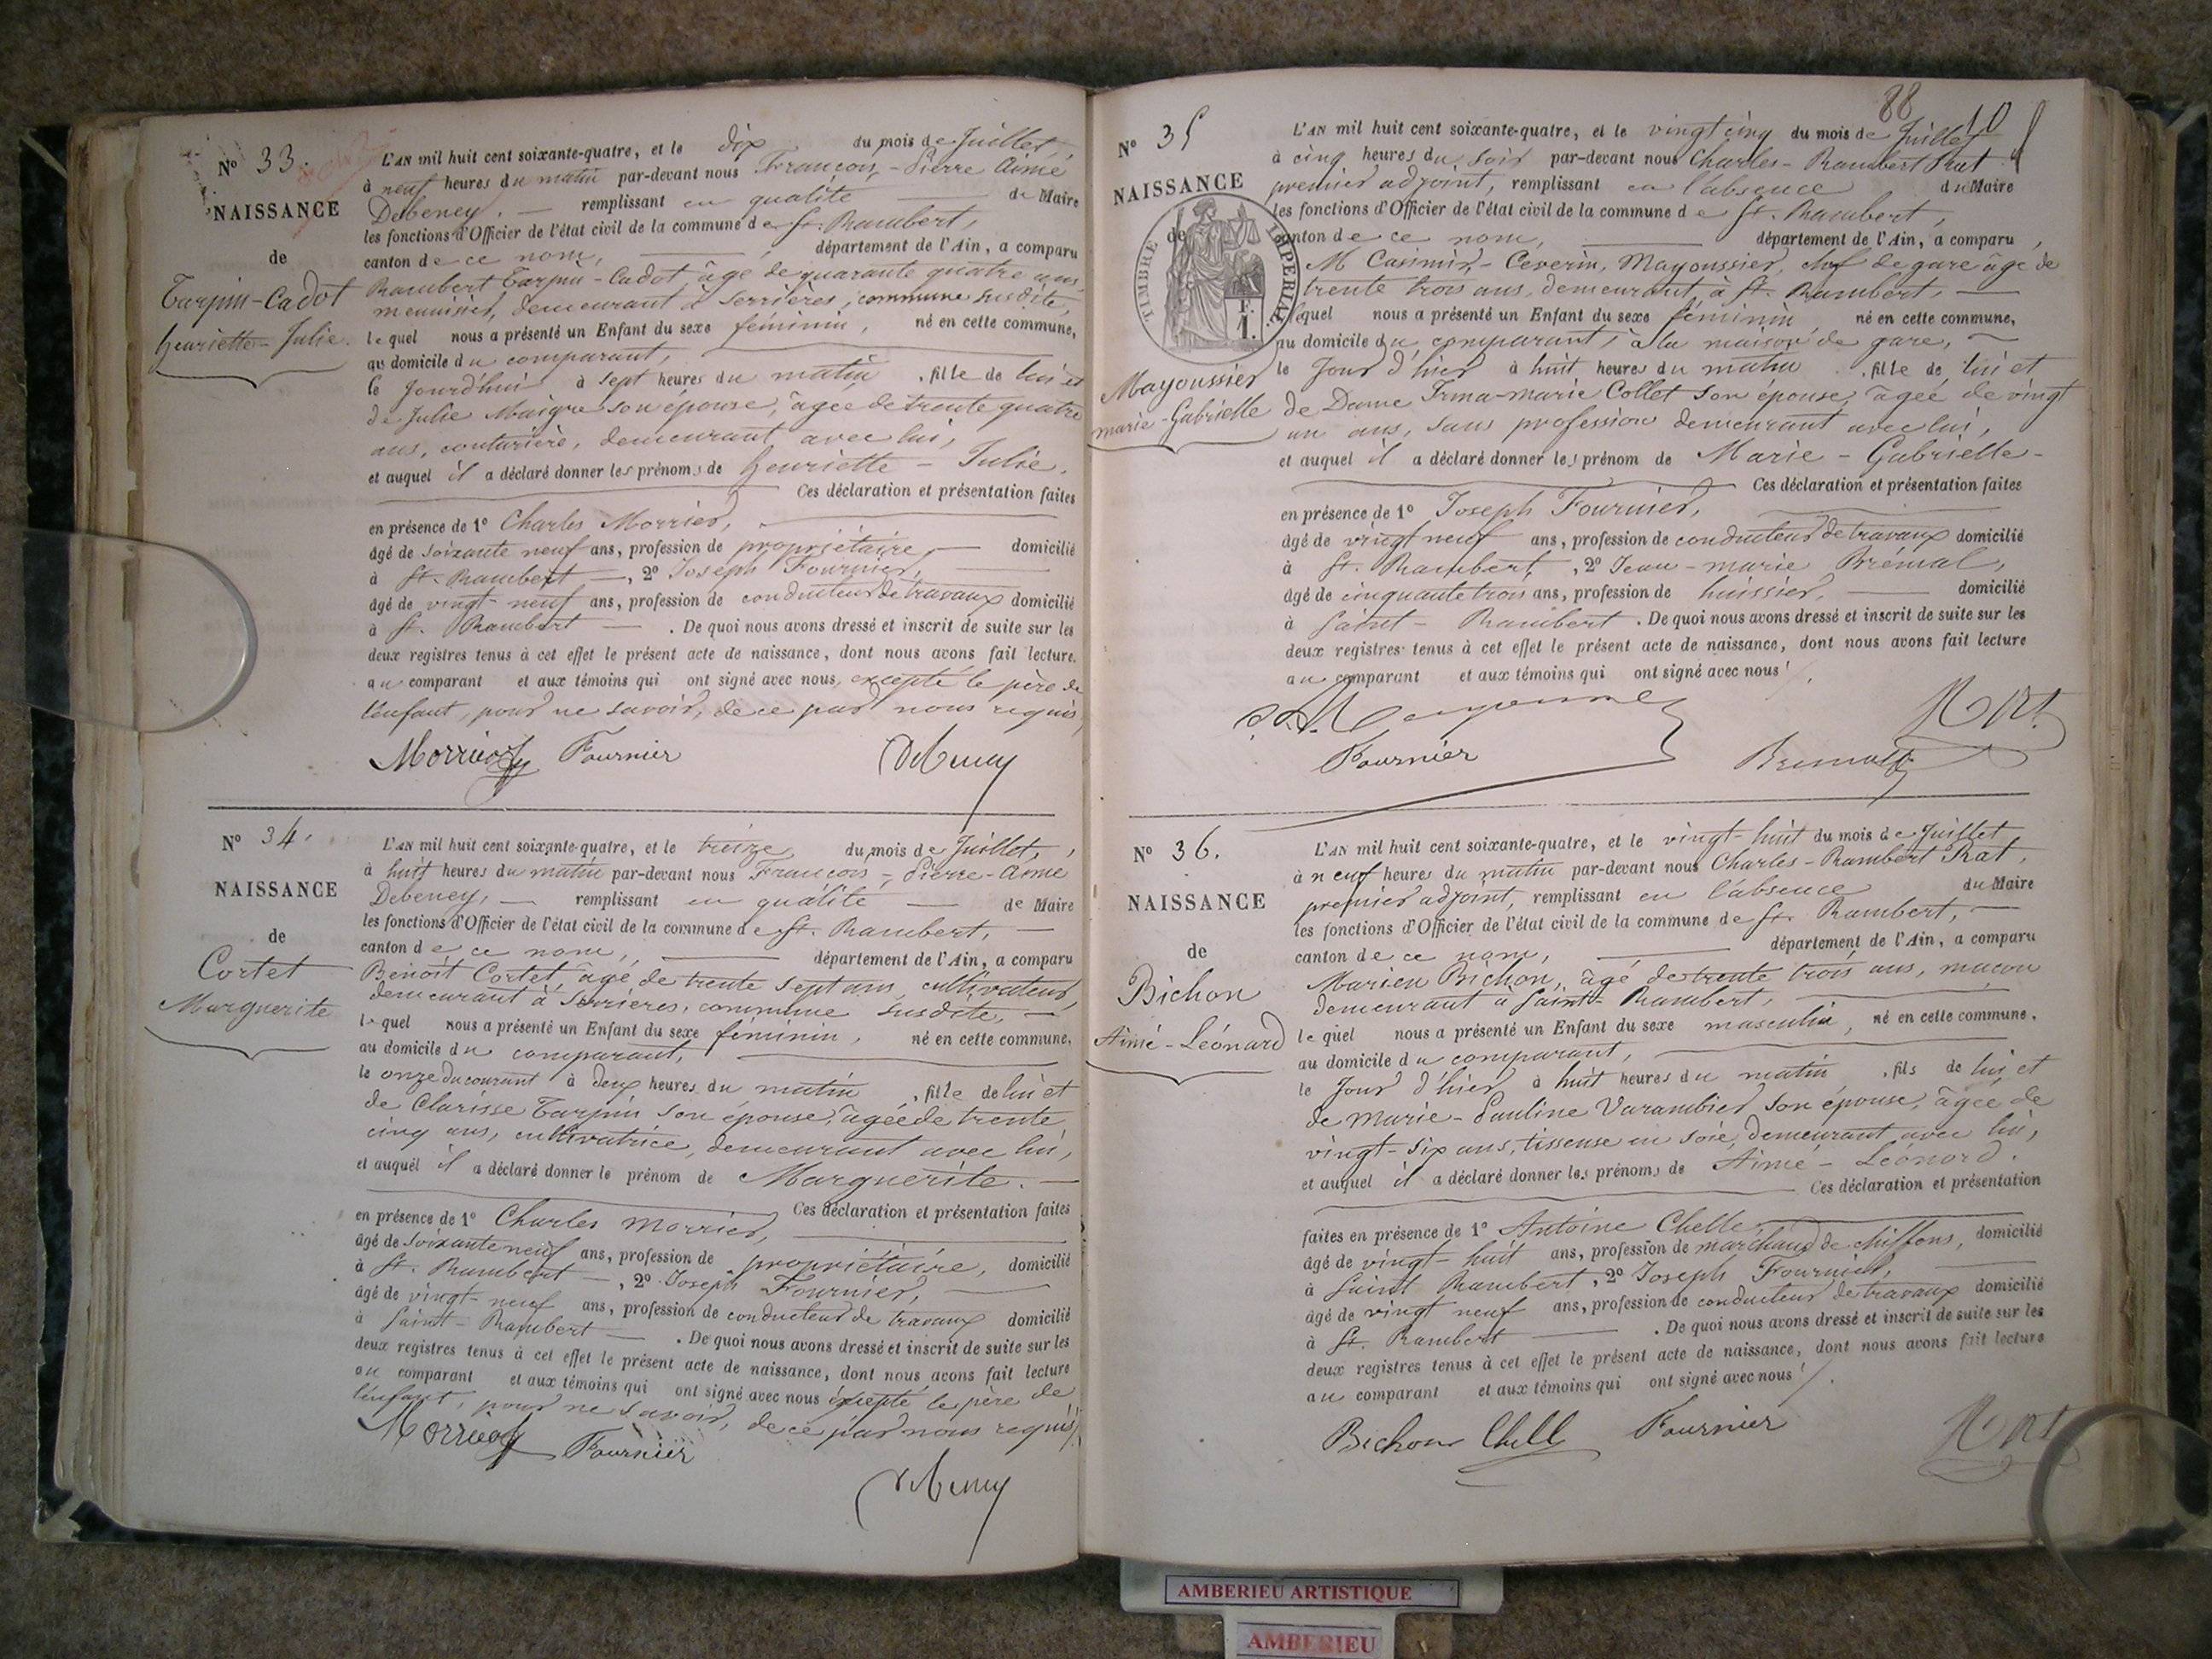 N° 33.
NAISSANCE
de
Tarpin-Cadot
henriette-Julie.
L'AN mil huit cent soixante-quatre, et le dix du mois de Juillet,
à neuf heures du matin par-devant nous François-Pierre Aimé
Debeney. remplissant en qualité de Maire
les fonctions d'Officier de l'état civil de la commune de St. Rambert,
canton de ce nom, département de l'Ain, a comparu
Rambert Tarpin-Cadot, âgé de quarante quatre ans,
menuisier, demeurant à Serrières, commune susdite,
lequel nous a présenté un Enfant du sexe féminin, né en cette commune,
au domicile du comparant,
le Jourd'hui à sept heures du matin, fille de lui et
de Julie Maigre son épouse, âgée de trente quatre
ans, couturière, demeurant avec lui,
et auquel il a déclaré donner les prénoms de henriette - Julie.
Ces déclaration et présentation faites
en présence de 1° Charles Morrier,
âgé de soixante neuf ans, profession de propriétaire, domicilié
à St. Rambert, 2° Joseph Fournier,
âgé de vingt-neuf ans, profession de conducteur de travaux domicilié
à St. Rambert. De quoi nous avons dressé et inscrit de suite sur les
deux registres tenus à cet effet le présent acte de naissance, dont nous avons fait lecture.
au comparant et aux témoins qui ont signé avec nous, excepté le père de
l'enfant, pour ne savoir, de ce par nous requis,
Morrier Fournier Debeney
N° 34.
NAISSANCE
de
Cortet
Marguerite
L'AN mil huit cent soixante-quatre, et le treize du mois de Juillet,
à huit heures du matin par-devant nous François-Pierre-Aimé
Debeney, remplissant en qualité de Maire
les fonctions d'Officier de l'état civil de la commune de St. Rambert,
canton de ce nom, département de l'Ain, a comparu
Benoit Cortet, âgé de trente sept ans, cultivateur,
demeurant à Serrières, commune susdite,
lequel nous a présenté un Enfant du sexe féminin, né en cette commune,
au domicile du comparant,
le onze du courant à deux heures du matin, fille de lui et
de Clarisse Tarpin son épouse, âgée de trente
cinq ans, cultivatrice, demeurant avec lui,
et auquel il a déclaré donner le prénom de Marguerite.
Ces déclaration et présentation faites
en présence de 1° Charles Morrier,
âgé de soixante neuf ans, profession de propriétaire, domicilié
à St. Rambert, 2° Joseph Fournier,
âgé de vingt-neuf ans, profession de conducteur de travaux domicilié
à Saint-Rambert. De quoi nous avons dressé et inscrit de suite sur les
deux registres tenus à cet effet le présent acte de naissance, dont nous avons fait lecture
au comparant et aux témoins qui ont signé avec nous excepté le père de
l'enfant, pour ne savoir, de ce par nous requis.
Morrier Fournier
Debeney
88
10
N° 35
NAISSANCE
de
TIMBRE IMPERIAL
1 F.
Mayoussier
marie-Gabrielle
L'AN mil huit cent soixante-quatre, et le vingt cinq du mois de Juillet
à cinq heures du soir par-devant nous Charles-Rambert Prat
premier adjoint, remplissant en l'absence du Maire
les fonctions d'Officier de l'état civil de la commune de St. Rambert,
canton de ce nom, département de l'Ain, a comparu
M Casimir-Ceverin, Mayoussier, chef de gare âgé de
trente trois ans, demeurant à St. Rambert,
lequel nous a présenté un Enfant du sexe féminin né en cette commune,
au domicile du comparant, à la maison de gare,
le Jour d'hier à huit heures du matin, fille de lui et
de Dame Irma-marie Collet son épouse, âgée de vingt
un ans, sans profession demeurant avec lui,
et auquel il a déclaré donner les prénom de Marie - Gabrielle -
Ces déclaration et présentation faites
en présence de 1° Joseph Fournier,
âgé de vingt neuf ans, profession de conducteur de travaux domicilié
à St. Rambert, 2° Jean-marie Brémal,
âgé de cinquante trois ans, profession de huissier, domicilié
à Saint-Rambert. De quoi nous avons dressé et inscrit de suite sur les
deux registres tenus à cet effet le présent acte de naissance, dont nous avons fait lecture
au comparant et aux témoins qui ont signé avec nous.
Fournier
N° 36.
NAISSANCE
de
Bichon
Aimé-Léonard
L'AN mil huit cent soixante-quatre, et le vingt-huit du mois de Juillet
à neuf heures du matin par-devant nous Charles-Rambert Prat,
premier adjoint, remplissant en l'absence du Maire
les fonctions d'Officier de l'état civil de la commune de St. Rambert,
canton de ce nom, département de l'Ain, a comparu
Marien Bichon, âgé de trente trois ans, maçon
demeurant à Saint-Rambert,
lequel nous a présenté un Enfant du sexe masculin, né en cette commune,
au domicile du comparant,
le Jour d'hier à huit heures du matin, fils de lui et
de Marie-Pauline Varambier son épouse, âgée de
vingt-six ans, tisseuse en soie, demeurant avec lui,
et auquel il a déclaré donner les prénoms de Aimé - Léonard.
Ces déclaration et présentation
faites en présence de 1° Antoine Chelle,
âgé de vingt-huit ans, profession de marchand de chiffons, domicilié
à Saint Rambert, 2° Joseph Fournier,
âgé de vingt neuf ans, profession de conducteur de travaux domicilié
à St. Rambert. De quoi nous avons dressé et inscrit de suite sur les
deux registres tenus à cet effet le présent acte de naissance, dont nous avons fait lecture
au comparant et aux témoins qui ont signé avec nous.
Bichon Chelle Fournier
AMBERIEU ARTISTIQUE
AMBERIEU